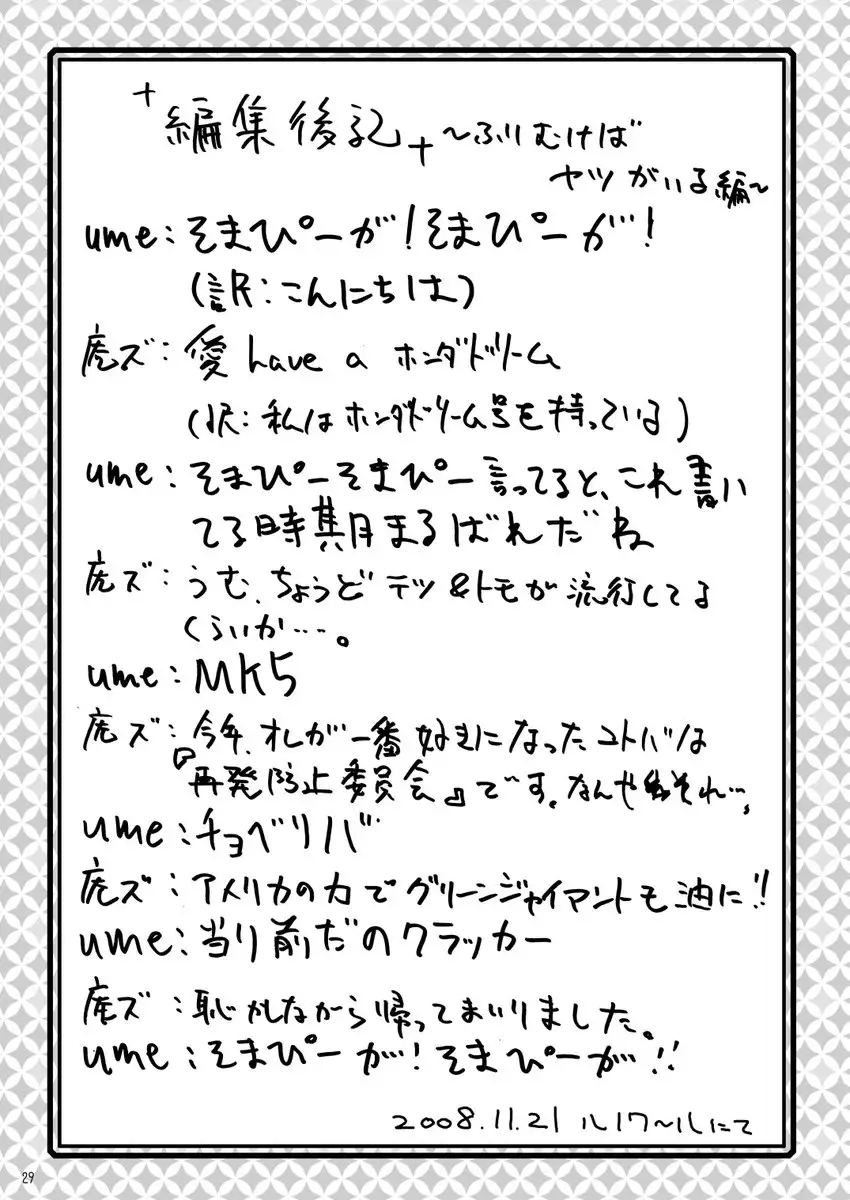 +編集後記+ ~ふりむけば
ヤツがいる編~
ume:そまぴーが!そまぴーが!
(訳:こんにちは)
虎ズ:愛 have a ホンダドリーム
(訳:私はホンダドリーム号を持っている)
ume:そまぴーそまぴー言ってると、これ書い
てる時期まるばれだね
虎ズ:うむ、ちょうどテツ&トモが流行してる
くらいか…。
ume:MK5
虎ズ:今年、オレが一番好きになったコトバは
『再発防止委員会』です。なんやそれ…。
ume:チョベリバ
虎ズ:アメリカの力でグリーンジャイアントも油に!!
ume:当り前だのクラッカー
虎ズ:恥かしながら帰ってまいりました。
ume:そまぴーが!そまぴーが!!
2008.11.21 ルノワ〜ルにて
29